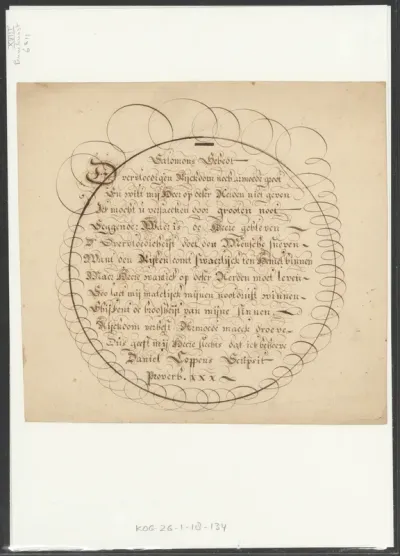 Salomons Gebedt
Overvloedigen Rijckdom noch armoede groot
En wilt mij Heer op deser Aerden niet geven
Ick mocht u versaecken door grooten noot
Seggende: Waer is de Heere gebleven
D' Overvloedicheijt doet den Mensche sneven
Want den Rijken comt swaerlijck ten Hemel binnen
Maer Heere naerdien ick op deser Aerden moet leven
Soo laet mij matelijck mijnen nootdruft winnen
de broosheijt van mijne sinnen
Rijckdom verheft Armoede maeckt droeve
Dus geeft mij Heere slechts dat ick behoeve
Daniel Coppens Scripsit
Proverb. xxx
KOG-26-1-1B-134